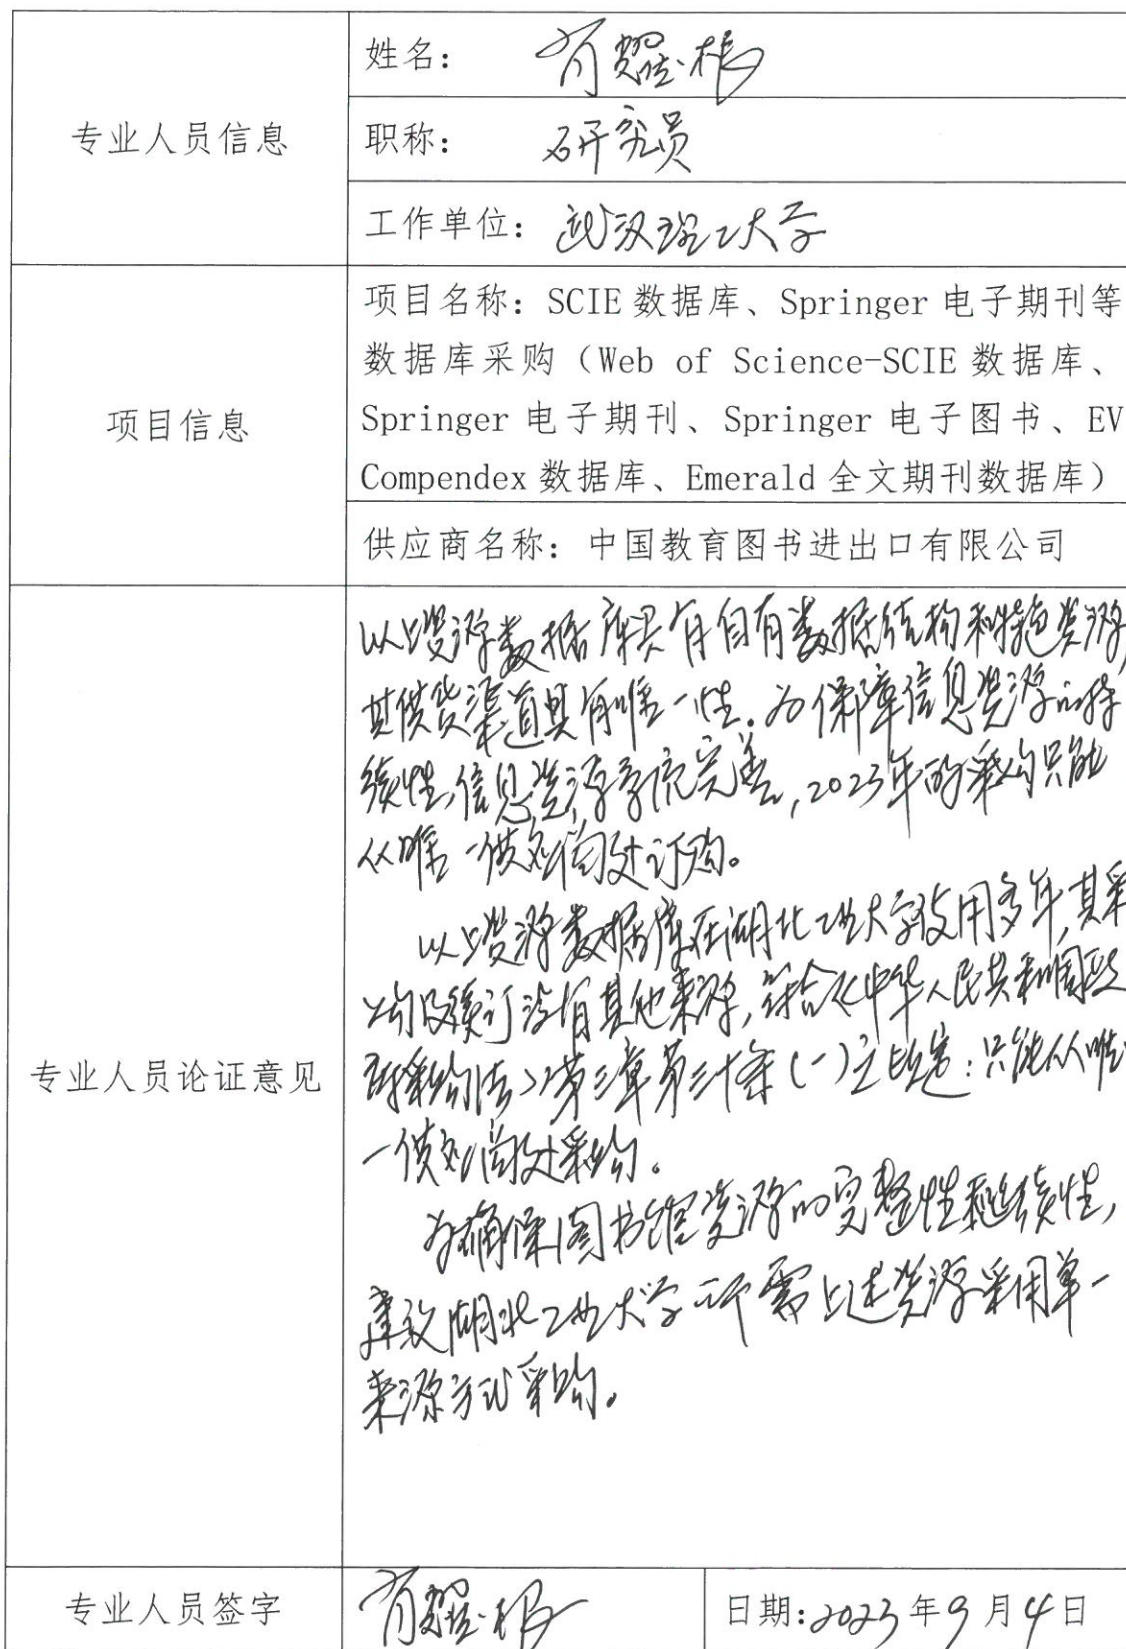 专业人员信息
姓名：肖耀根
职称：研究员
工作单位：武汉理工大学
项目信息
项目名称：SCIE 数据库、Springer 电子期刊等
数据库采购（Web of Science-SCIE 数据库、
Springer 电子期刊、Springer 电子图书、EV
Compendex 数据库、Emerald 全文期刊数据库）
供应商名称：中国教育图书进出口有限公司
专业人员论证意见
以上资源数据库具有自有数据结构和特色资源，
其供货渠道具有唯一性。为保障信息资源的持
续性、信息资源完善，2023年的采购只能
从唯一供应商处订购。
以上资源数据库在湖北工业大学使用多年，其采
购及续订没有其他来源，符合《中华人民共和国政
府采购法》第三章第三十一条（一）之规定：只能从唯
一供应商处采购。
为确保图书馆资源的完整性和连续性，
建议湖北工业大学所需上述资源采用单一
来源方式采购。
专业人员签字
肖耀根
日期：2023年9月4日